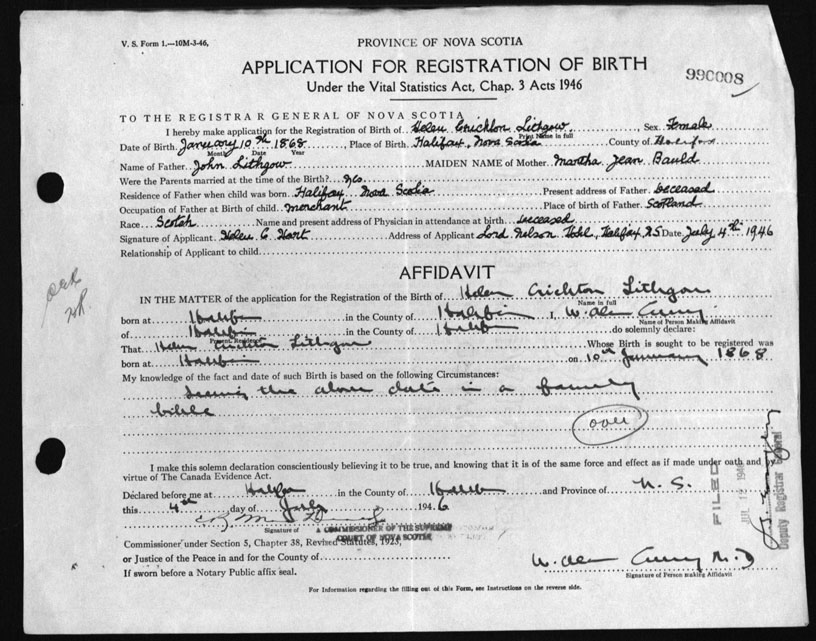 V. S. Form 1.—10M-3-46,
PROVINCE OF NOVA SCOTIA
APPLICATION FOR REGISTRATION OF BIRTH
990008
Under the Vital Statistics Act, Chap. 3 Acts 1946
TO THE REGISTRAR GENERAL OF NOVA SCOTIA
I hereby make application for the Registration of Birth of Helen Crichton Lithgow, Sex Female
Print Name in full
Date of Birth January 10th 1868, Place of Birth Halifax, Nova Scotia County of Halifax
Month Date Year
Name of Father John Lithgow MAIDEN NAME of Mother Martha Jean Bauld
Were the Parents married at the time of the Birth? Yes
Residence of Father when child was born Halifax Nova Scotia Present address of Father Deceased
Occupation of Father at Birth of child merchant Place of birth of Father Scotland
Race Scotch Name and present address of Physician in attendance at birth Deceased
Signature of Applicant Helen C. Hart Address of Applicant Lord Nelson Hotel, Halifax NS Date July 4th 1946
Relationship of Applicant to child
AFFIDAVIT
IN THE MATTER of the application for the Registration of Birth of Helen Crichton Lithgow
Name in full
born at Halifax in the County of Halifax I, W. Alan Curry
Name of Person Making Affidavit
of Halifax in the County of Halifax do solemnly declare:
Present Residence
That Helen Crichton Lithgow Whose Birth is sought to be registered was
born at Halifax on 10th January 1868
My knowledge of the fact and date of such Birth is based on the following Circumstances:
Seeing the above date in a family
bible
over
I make this solemn declaration conscientiously believing it to be true, and knowing that it is of the same force and effect as if made under oath and by
virtue of The Canada Evidence Act.
Declared before me at Halifax in the County of Halifax and Province of N. S.
this 4th day of July 1946
Signature of A COMMISSIONER OF THE SUPREME
COURT OF NOVA SCOTIA
Commissioner under Section 5, Chapter 38, Revised Statutes, 1923,
or Justice of the Peace in and for the County of
If sworn before a Notary Public affix seal.
W. Alan Curry M.D
Signature of Person making Affidavit
For Information regarding the filling out of this Form, see Instructions on the reverse side.
FILED
Deputy Registrar General